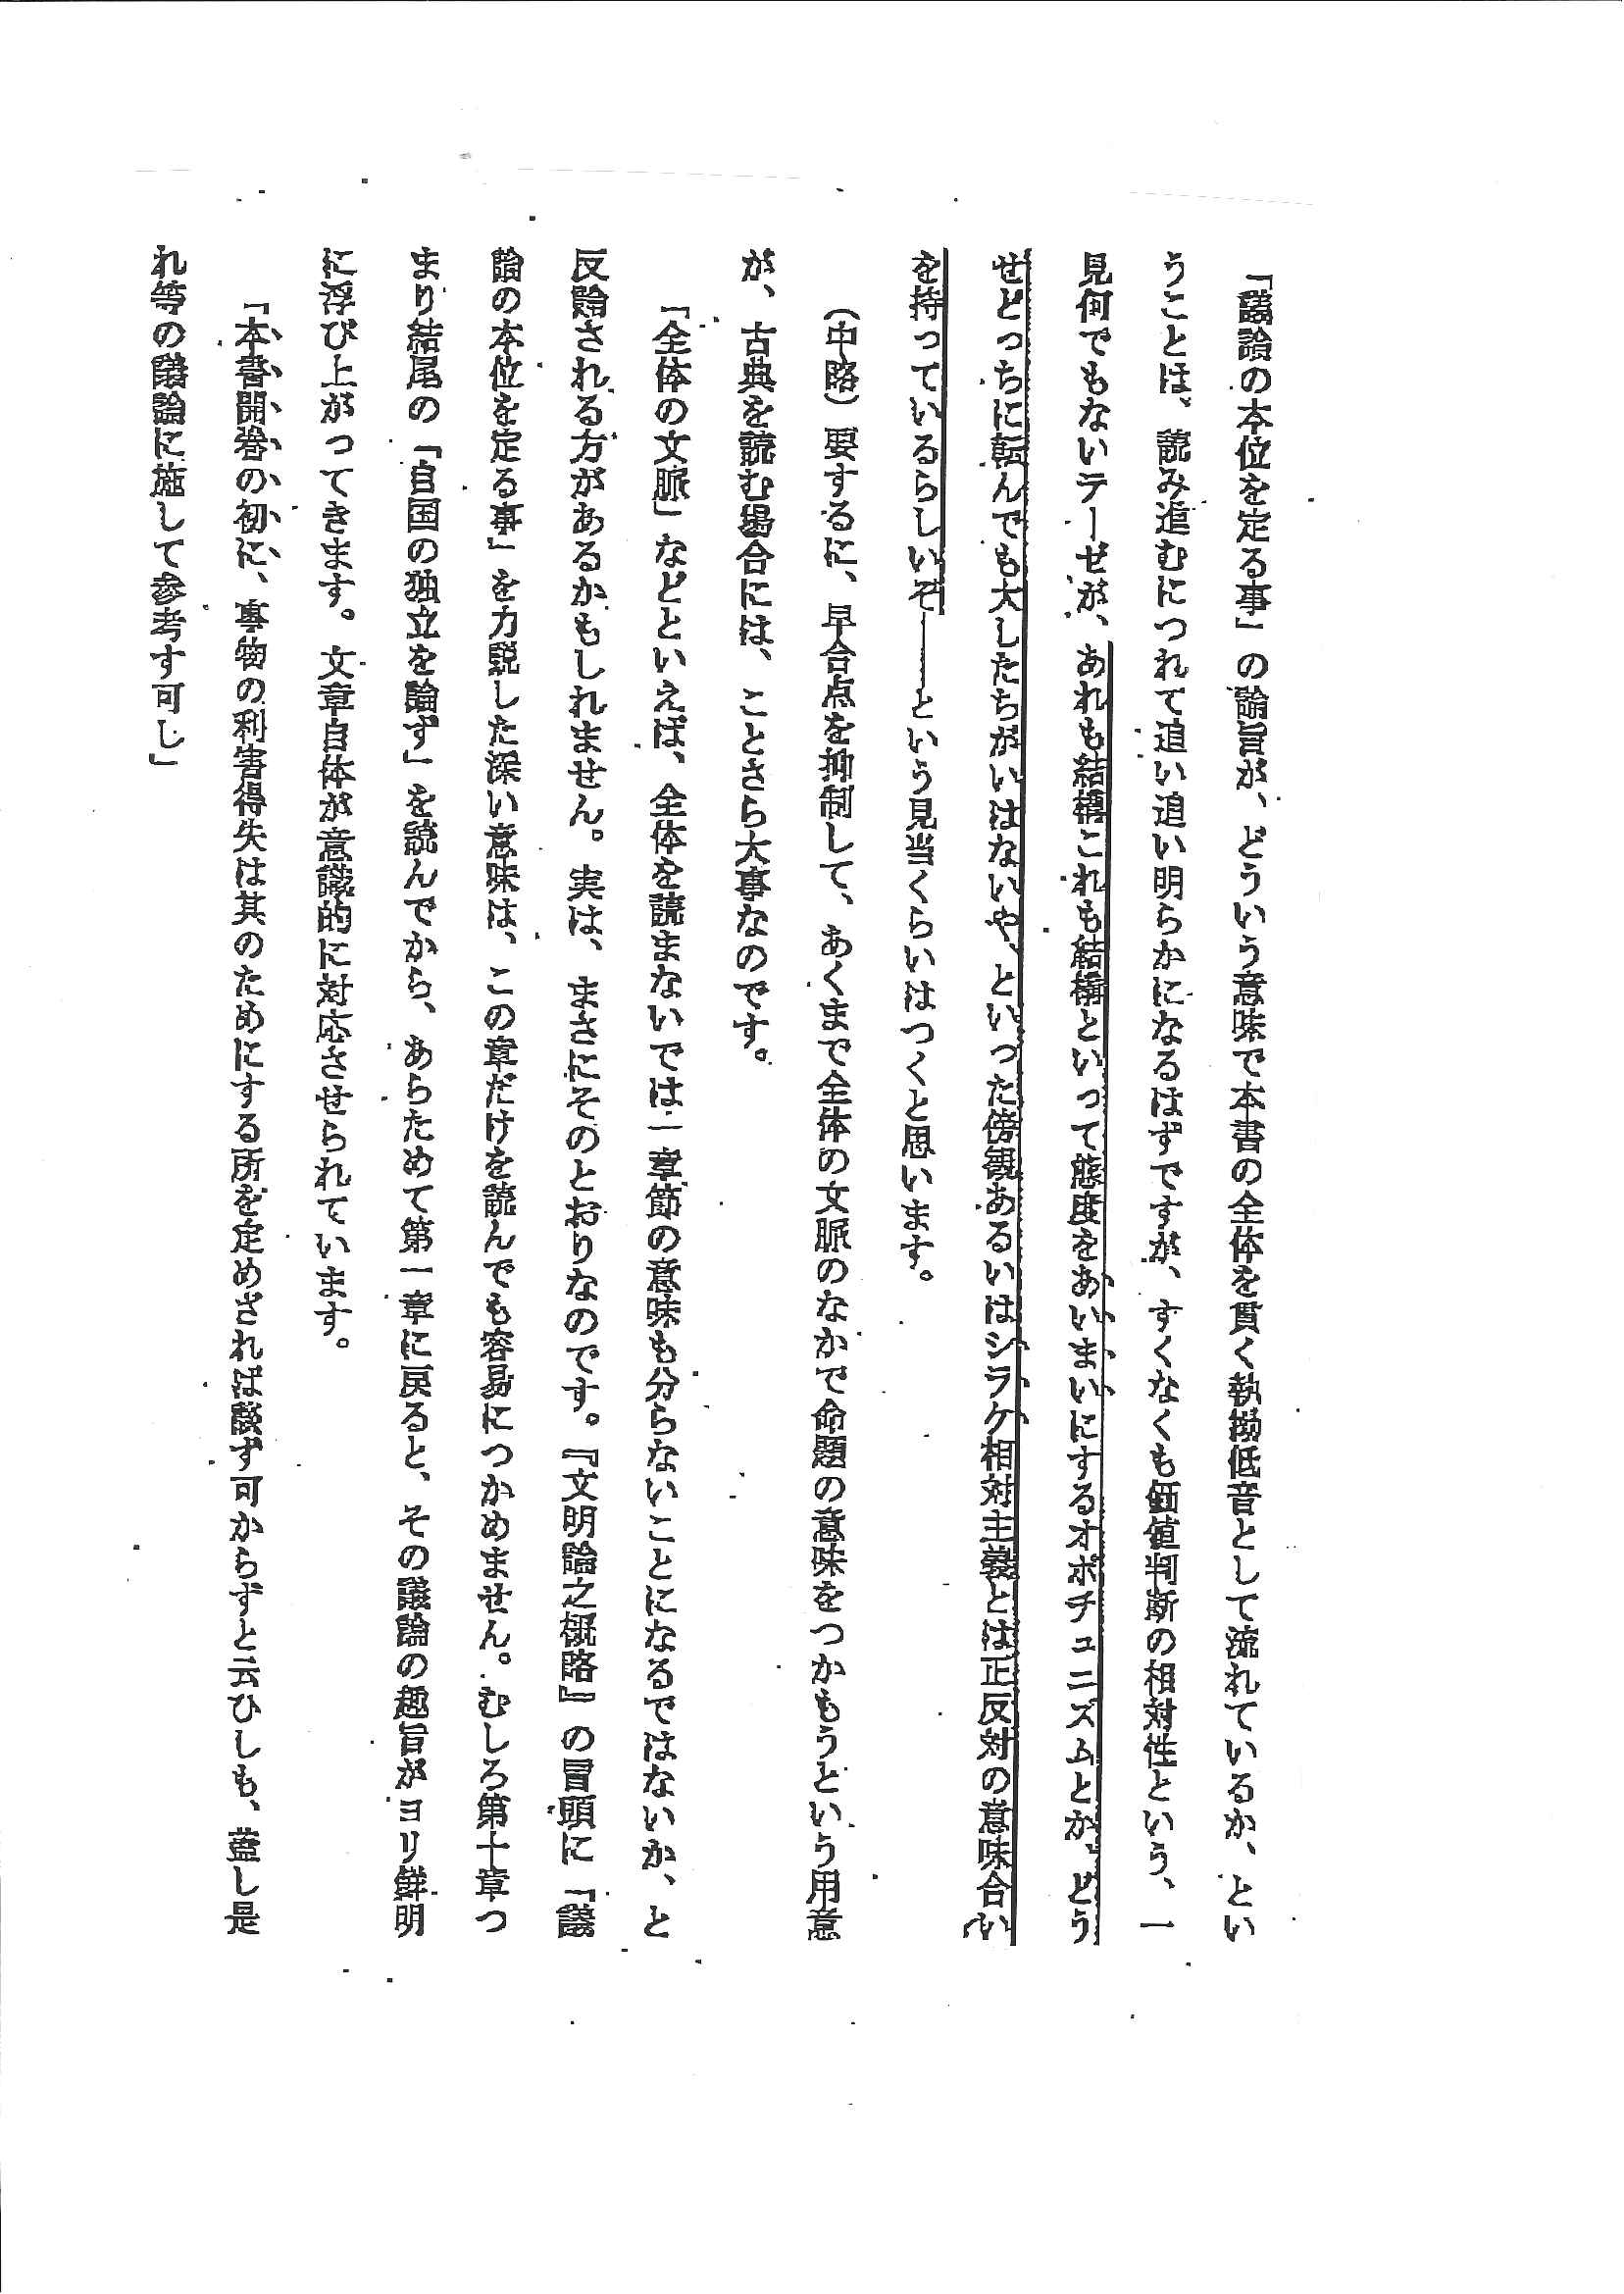 「議論の本位を定る事」の論旨が、どういう意味で本書の全体を貫く執拗低音として流れているか、とい
うことは、読み進むにつれて追い追い明らかになるはずですが、すくなくも価値判断の相対性という、一
見何でもないテーゼが、あれも結構これも結構といって態度をあいまいにするオポチュニズムとか、どう
せどっちに転んでも大したちがいはないや、といった傍観あるいはシラケ相対主義とは正反対の意味合い
を持っているらしいぞ――という見当くらいはつくと思います。
（中略）要するに、早合点を抑制して、あくまで全体の文脈のなかで命題の意味をつかもうという用意
が、古典を読む場合には、ことさら大事なのです。
「全体の文脈」などといえば、全体を読まないでは一章節の意味も分らないことになるではないか、と
反論される方があるかもしれません。実は、まさにそのとおりなのです。『文明論之概略』の冒頭に「議
論の本位を定る事」を力説した深い意味は、この章だけを読んでも容易につかめません。むしろ第十章つ
まり結尾の「自国の独立を論ず」を読んでから、あらためて第一章に戻ると、その議論の趣旨がヨリ鮮明
に浮び上がってきます。文章自体が意識的に対応させられています。
「本書開巻の初に、事物の利害得失は其のためにする所を定めざれば談ず可からずと云ひしも、蓋し是
れ等の議論に施して参考す可し」